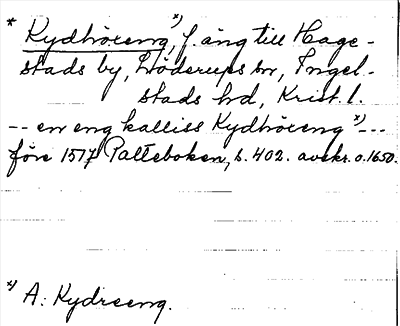 * Kydhöreng *), f. äng till Hage-
stads by, Löderups sn, Ingel-
stads hd, Krist. l.
-- en eng kalliss Kydhöreng *) ---
före 1517 Palteboken, s. 402. avskr. o. 1650.
*) A: Kydreeng.